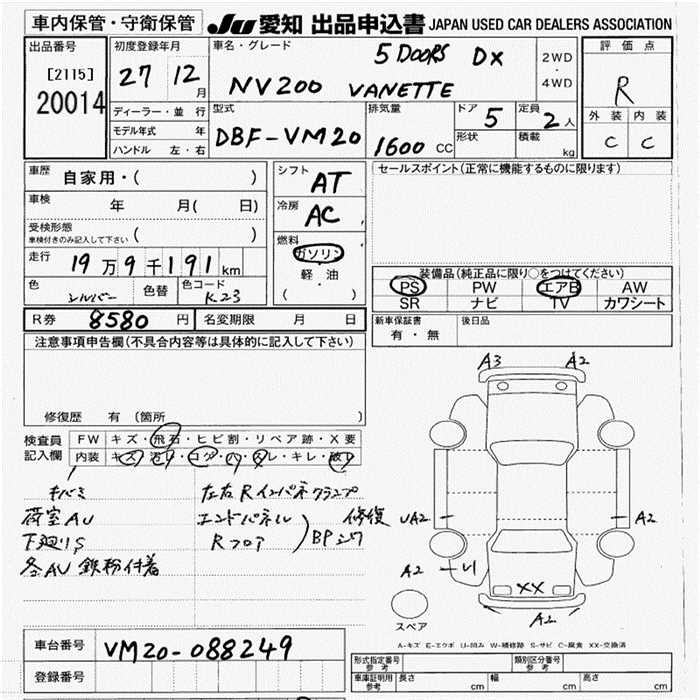 車内保管・守衛保管 JU 愛知 出品申込書 JAPAN USED CAR DEALERS ASSOCIATION
出品番号 初度登録年月 車名・グレード 5 DOORS DX 2WD ・ 4WD 評価点
[2115]
20014
27 12月 NV200 VANETTE R
ディーラー・並行 型式 排気量 ドア 5 定員 2人 外装 内装
モデル年式 年 DBF-VM20 1600 CC 形状 積載 kg C C
ハンドル 左・右
車歴 自家用・( ) シフト AT セールスポイント(正常に機能するものに限ります)
車検 年 月( 日) 冷房 AC
受検形態
車検付きのみ記入して下さい ( )
燃料 ガソリン
軽・油
( )
走行 19万9千191km
色 シルバー 色替 色コード K23
装備品(純正品に限り○をつけてください)
PS PW エアB AW
SR ナビ TV カワシート
R券 8580円 名変期限 月 日
新車保証書 有・無 後日品
注意事項申告欄(不具合内容等は具体的に記入して下さい)
修復歴 有 (箇所 )
A3 A2
検査員記入欄 FW キズ・飛石・ヒビ割・リペア跡・X要
内装 キズ・汚レ・コゲ・穴・スレ・キレ・破レ
キバミ 左右Rインパネクランプ
荷室AU エンドパネル 修復
下廻りS Rフロア BPシワ
各AU 鉄粉付着
UA2 A2
A2 U1
XX
A2
スペア
A-キズ E-エクボ U-凹み W-補修跡 S-サビ C-腐食 XX-交換済
車台番号 VM20-088249
登録番号
形式指定番号 参考 類別区分番号 参考
車庫証明用 参考 長さ cm 幅 cm 高さ cm